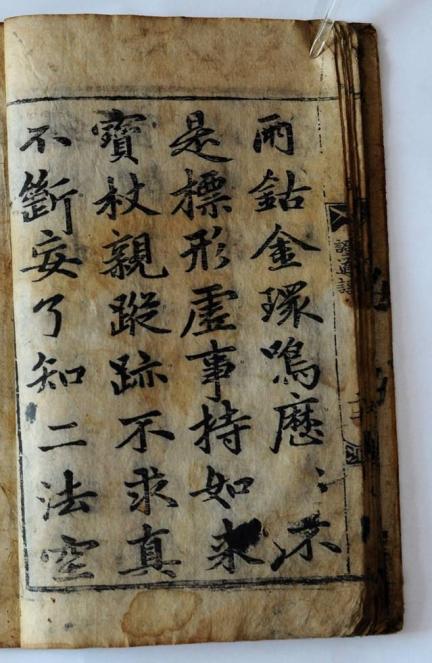 兩鈷金環鳴歷〻不
是標形虛事持如來
寶杖親蹤跡不求真
不斷妄了知二法空